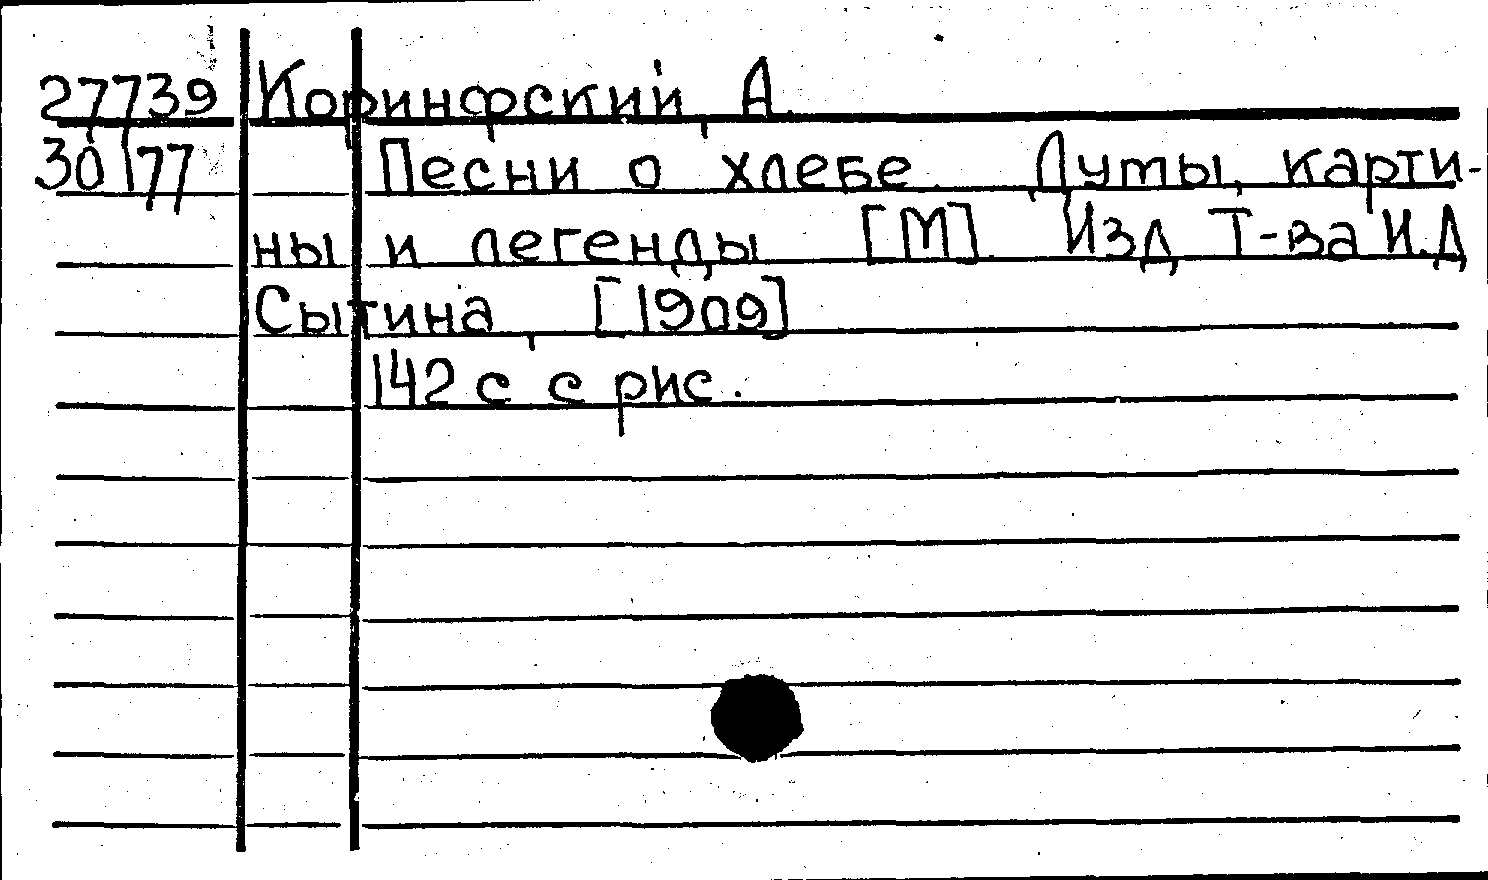 27739 Коринфский, А.
30/77 Песни о хлебе. Думы, карти-
ны и легенды. [М]. Изд. Т-ва И.Д
Сытина, [1909]
142 с. с рис.